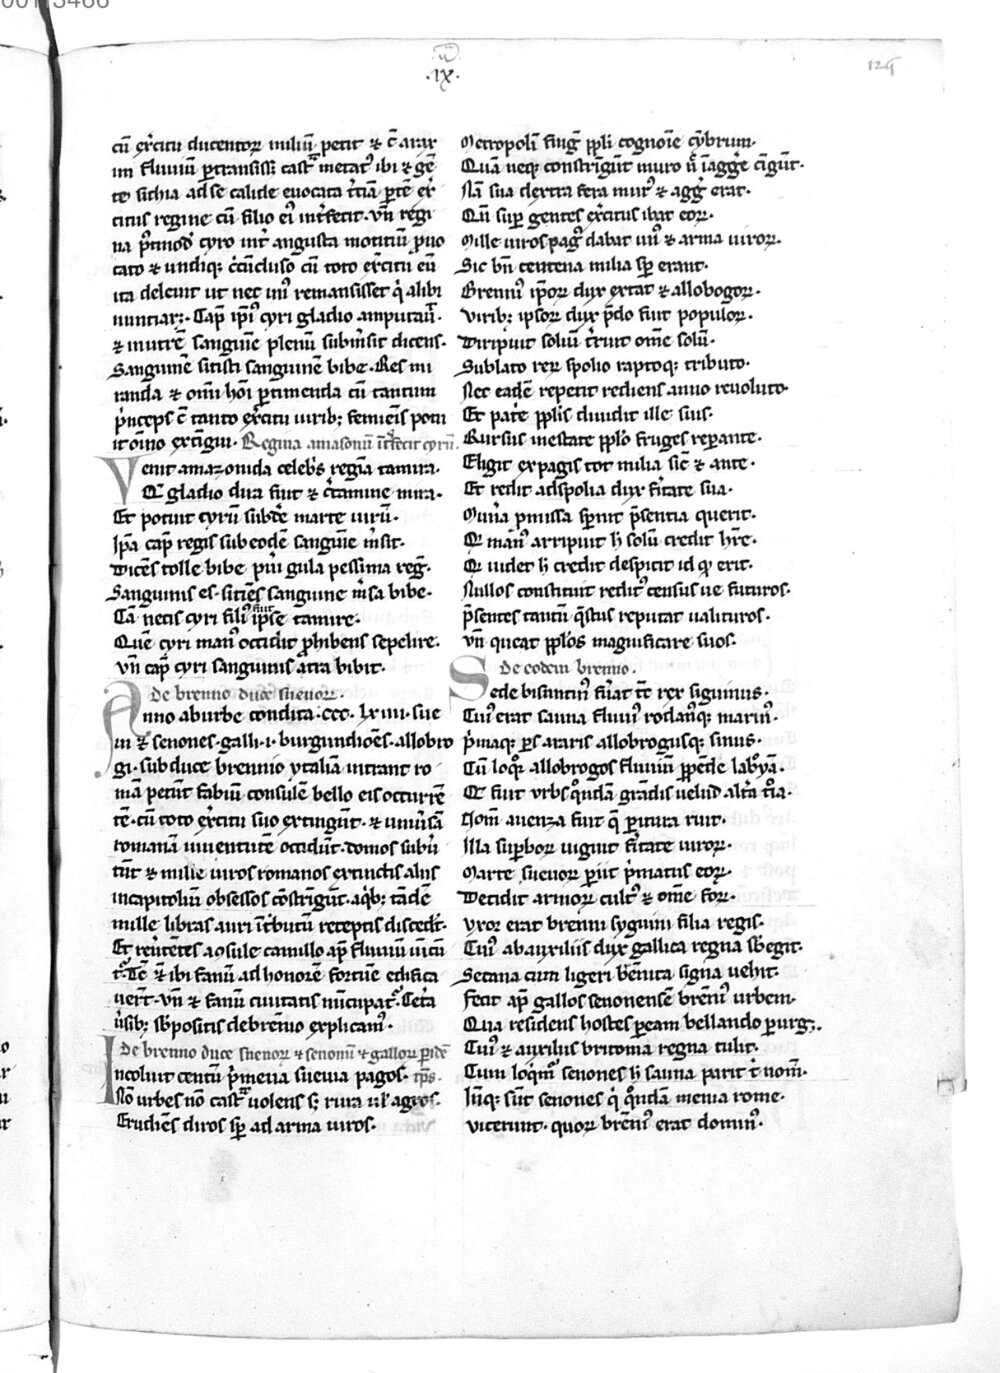 .IX.
124
cū ex̄citu ducentor miliū petit ⁊ c̄ arax
im fluuiū ptransiss; cast̄ metatꝰ ibi ⁊ gē
te sichia ad se calide euocata t̄ciā ptē ex̄
citus regine cū filio eiꝰ int̄fecit. vn̄ regi
na p̄tmodꝰ cyro int̄ angusta motium̄ puo
cato ⁊ undiqꝫ c̄cūcluso cū toto ex̄citu eū
ita deleuit ut nec unꝰ remansisset q̇ alibi
nuntiar;. Cap̄ ipī cyri gladio amputaū.
⁊ in utrē sanguīe plenū submsit dicens.
Sanguinē sitisti sanguinē bibe. Res mi
randa ⁊ om̄i hōi ptimenda cū tantum
p̄nceps c̄ tanto ex̄citu uirib; femieīs potu
it oīno extīgui. Regina amasonū int̄fecit cyrū.
Venit amazonida celebs regīa tamira.
Q̄ gladio dira fuit ⁊ c̄tamine mira.
Et potuit cyrū subdē marte uirū.
Ipā cap̄ regis sub eodē sanguīe m̄sit.
Dicēs tolle bibe pīi gula pessima reḡ.
Sanguinis es. sitiēs sanguine m̄sa bibe.
Cā necis cyri filiꝰ fuit ip̄se tamire.
Quē cyri manꝰ occidit phibens sepelire.
vn̄ cap̄ cyri sanguinis atra bibit.
De brenno duce sueuor.
Anno ab urbe condita. ccc. lxiiii. sue
ui ⁊ senones. galli. i. burgundiōes. allobro
gi. sub duce brennio ytaliā intrant ro
mā petūt fabiū consulē bello eis occurrē
tē. cū toto ex̄citu suo extīgūt. ⁊ uniūsā
romanā iuuentutē occidūt. domos subū
tūt ⁊ mille uiros romanos extinctis aliis
in capitoliū obsessos cōstrīgūt. a q̇b; tādē
mille libras auri īt̄butū receptis discedūt.
Et reūt̄etes a ꝯsule camillo ap̄ fluuiū uīcū
t̄. Tē ⁊ ibi fanū ad honorē fortūe edifica
uert̄. vn̄ ⁊ fanū ciuitatis nūcipat̄. Cet̄a
ūsib; sb̄positis de brēnio explicamꝰ.
De brenno duce sueuor ⁊ senonū ⁊ gallor pidē
Incoluit centū p̄meua sueuia pagos. tp̄s.
Nō urbes nō cast̄ uolens s; rura ul̄ agros.
Erudiēs diros sp̄ ad arma uiros.
Metropolī fuig̃ ppli cognoīe cībrum.
Quā neqꝫ constrīgūt muro n̄ iāgḡe cīgūt.
Nā sua dextra fera murꝰ ⁊ agḡ erat.
Qn̄ sup gentes ex̄citus ibat eor.
Mille uiros pagꝰ dabat unꝰ ⁊ arma uiror.
Sic bn̄ centena milia sp̄ erant.
Brenniꝰ ipor dux extat ⁊ allobogor.
Virib; ipsor dux p̄do fuit populor.
Diripuit soliū t̄ruit om̄e solū.
Sublato rer spolio raptoqꝫ tributo.
Nec eadē repetit rediens anno reuoluto.
Et patē pplis diuidit ille suis.
Rursus in estate pplo fruges repante.
Eligit ex pagis tot milia sic̄ ⁊ ante.
Et redit ad spolia dux fītate sua.
Munia pmissa sp̄nit p̄sentia querit.
Q̄ manꝰ arripuit h̄ solū credit hr̄e.
Q̄ uidet h̄ credit despicit id qd̄ erit.
Nullos constituit reditꝰ census ue futuros.
P̄sentes tantū q̄stus reputat ualituros.
vn̄ queat pplōs magnificare suos.
De eodem brenno.
Sede bisantinꝰ fūat tē rex siguinus.
Cuiꝰ erat sauna fluuiꝰ rodanꝰqꝫ marinꝰ.
p̄maqꝫ ps araris allobrogusqꝫ sinus.
Cū loqr̄ allobrogos fluuiū ppēde labyā.
Q̄ fuit urbs q̊ndā grādis uelud alt̄a t̄ia.
Nom̄ auenza fuit q̄ pitura ruit.
Illa supbor uiguit fītate uiror.
Marte sueuor piit p̄matus eor.
Decidit armor cultꝰ ⁊ om̄e for.
Vxor erat brenni syguini filia regis.
Cuiꝰ ab auxiliis dux gallica regna sb̄egit.
Secana cum ligeri bēnita signa uehit.
Fecit ap̄ gallos senonensē brēnꝰ urbem.
Qua residens hostes peam bellando purg;.
Cuiꝰ ⁊ auxiliis britoma regna tulit.
Cum loq̄m̄ senones h̄ sauna parit t̄ nom̄.
Inqꝫ sūt senones q̇ q̊ndā menia rome.
vicerunt. quor brēnꝰ erat dominꝰ.